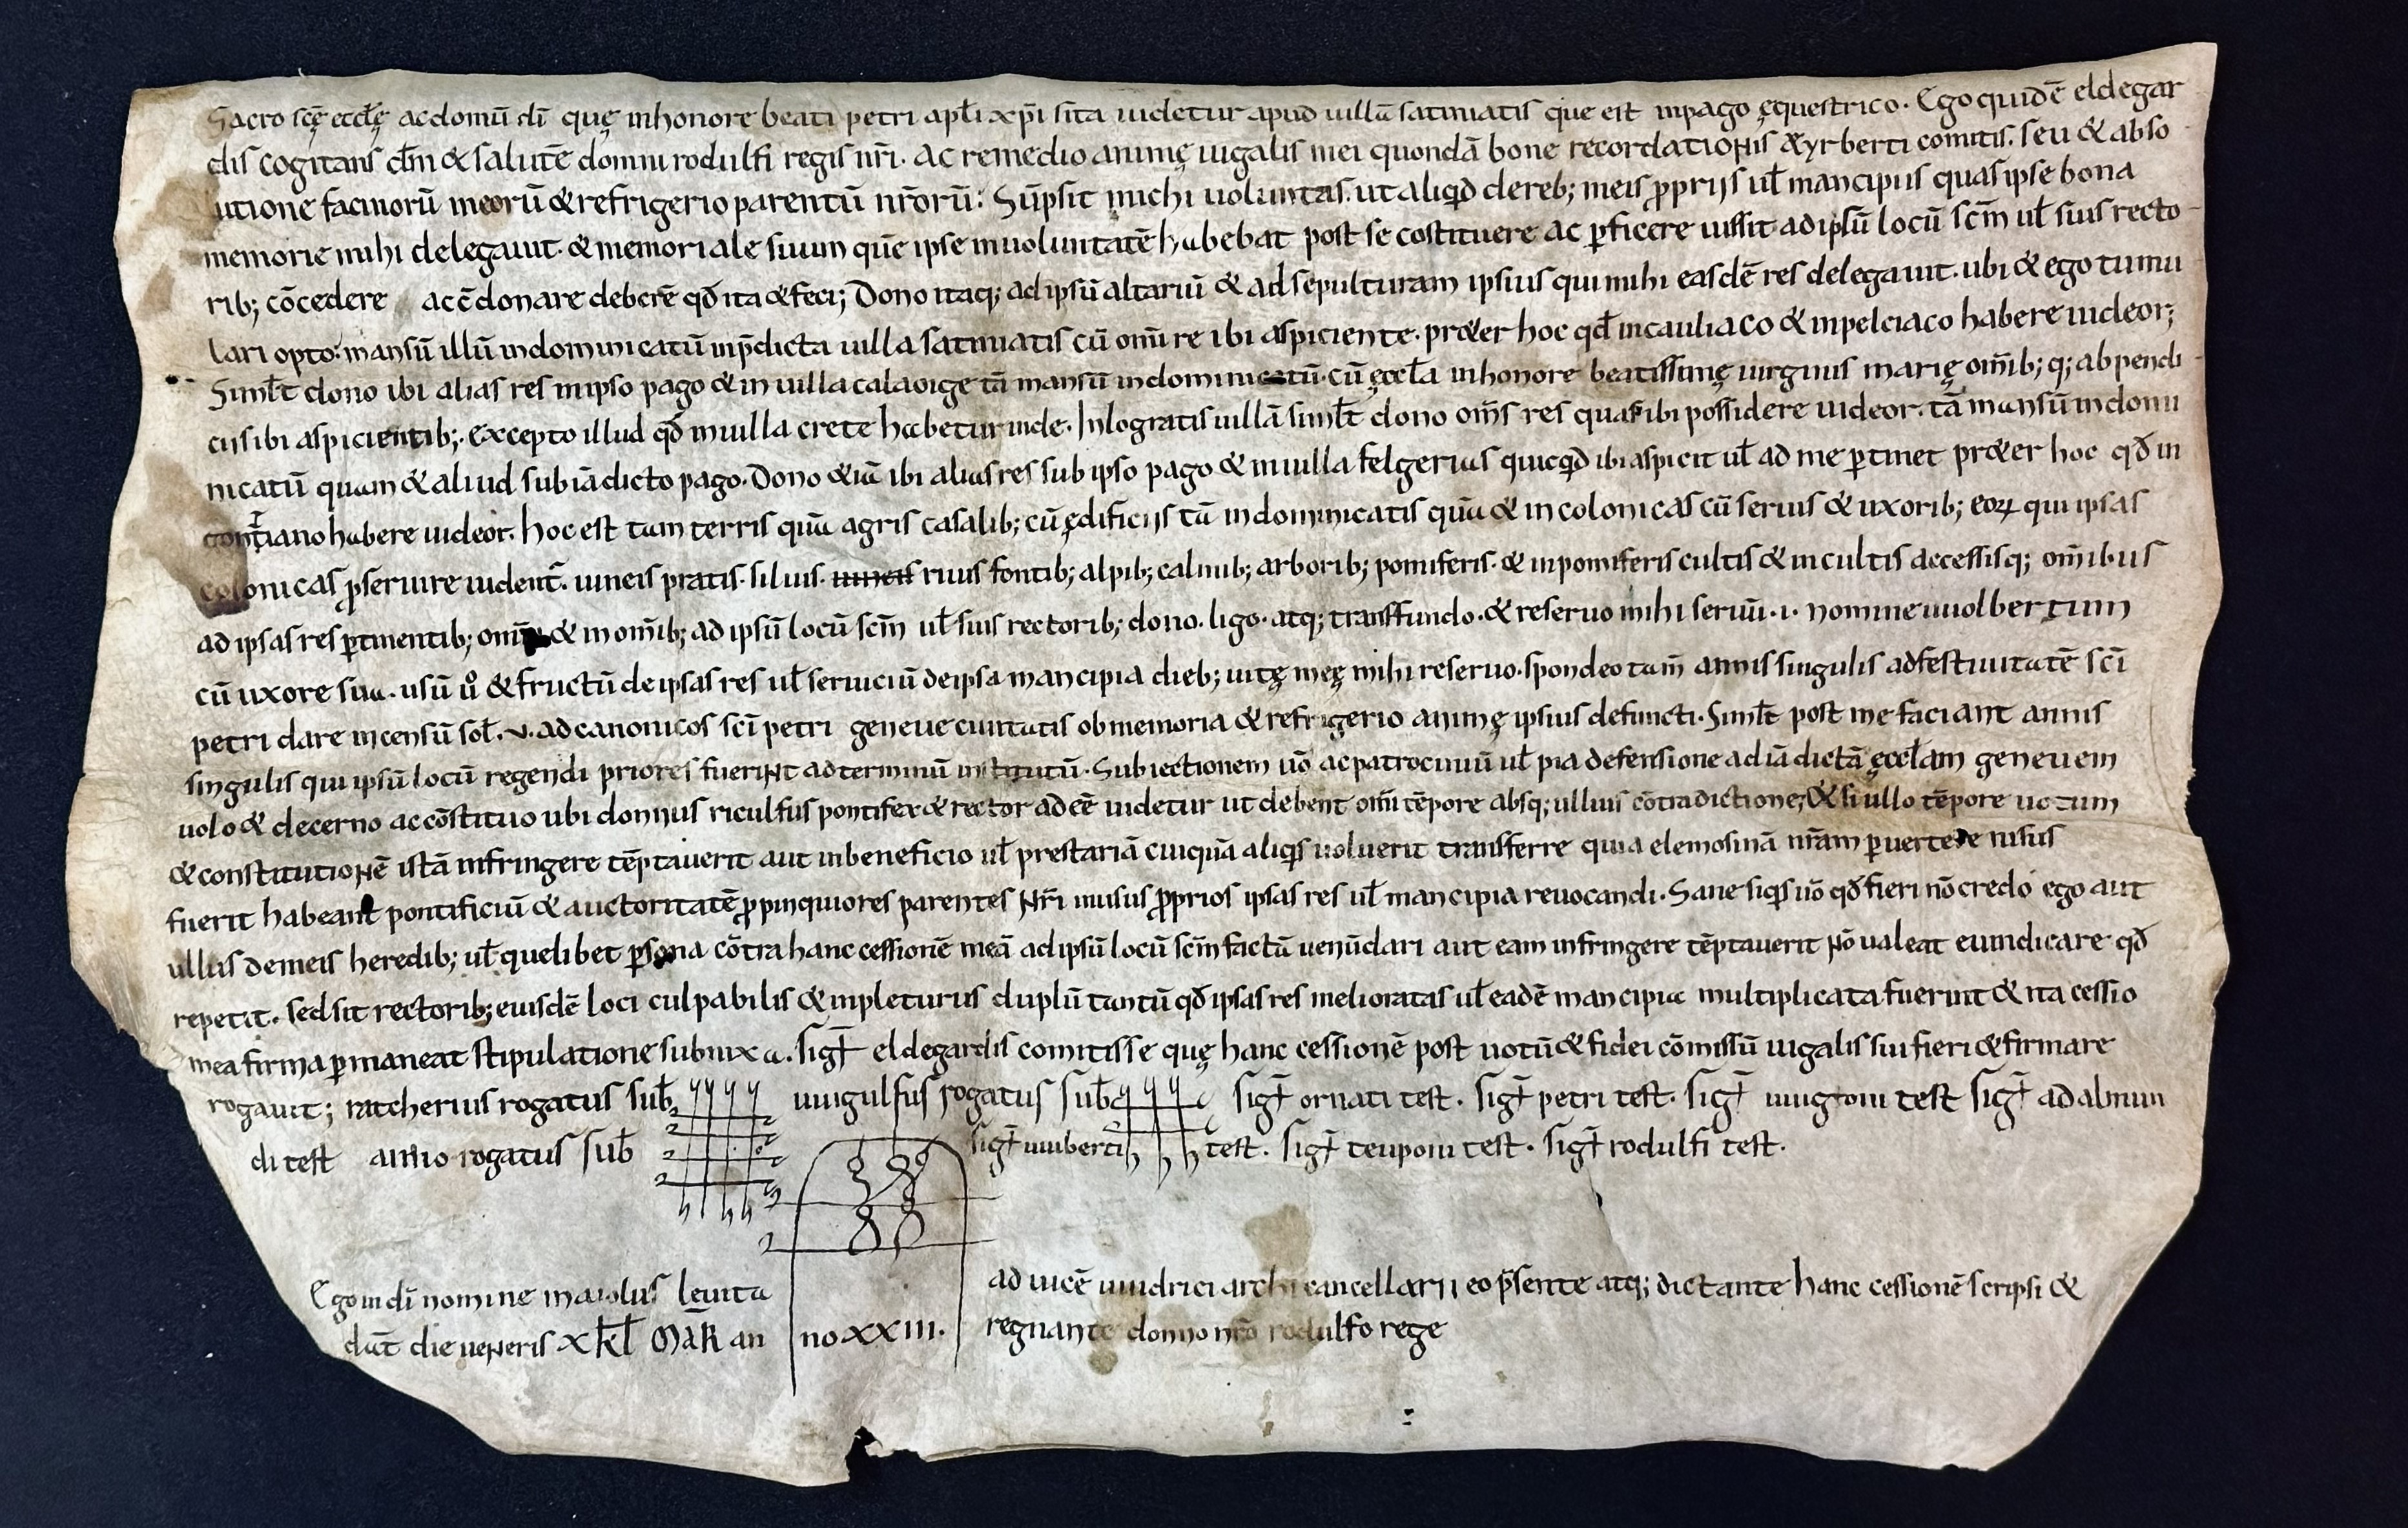 Sacro scę eccłę ac domū dī quę in honore beati petri apłi xp̄i sita uidetur apud uillā satiniatis que est in pago ęquestrico. Ego quidē eldegar
dis cogitans dm̄ & salutē domni rodulfi regis nr̄i. Ac remedio animę iugalis mei quondā bone recordationis ayrberti comitis. seu & abso
lutione facinorū meorū & refrigerio parentū nr̄orū: Sūpsit michi uoluntas. ut aliq̄d de reb; meis ꝓprijs uł mancipiis quas ipse bona
memorie mihi delegauit. & memoriale suum quē ipse in uoluntatē habebat post se costituere ac ꝑficere iussit. ad ipsū locū scm̄ uł suis recto
rib; cōcedere ac cōdonare deberē qđ ita & feci; Dono itaq; ad ipsū altariū & ad sepulturam ipsius qui mihi easdē res delegauit. ubi & ego tumu
lari opto. mansū illū indominicatū in p̄dicta uilla satiniatis cū om̄i re ibi aspiciente. pręter hoc qđ in cauliaco & in pelciaco habere uideor;
Simłt dono ibi alias res in ipso pago & in uilla calaoige tā mansū indominicatū. cū ęccła in honore beatissimę uirginis marię om̄ib; q; ab pendi
ciis ibi aspicientib;. Excepto illud qđ in uilla crete habetur inde. In logratis uillā simłt dono om̄s res quas ibi possidere uideor. tā mansū indomi
nicatū quam & aliud sub iā dicto pago. Dono &iā ibi alias res sub ipso pago & in uilla felgerias quicq̄d ibi aspicit uł ad me ꝑtinet pręter hoc qđ in
contriano habere uideor. hoc est tam terris quā agris casalib; cū ędificijs tā indominicatis quā & in colonicas cū seruis & uxorib; eoꝝ qui ipsas
colonicas ꝓseruire uident̄. uineis pratis. siluis. uineis riuis fontib; alpib; calmib; arborib; pomiferis. & inpomiferis cultis & incultis accessisq; om̄ibus
ad ipsas res ꝑtinentib; om̄ia & in om̄ib; ad ipsū locū scm̄ uł suis rectoribus; dono. ligo. atq; transfundo. & reseruo mihi seruū .i. nomine uuolbertum
cū uxore sua. usū u̇ & fructū de ipsas res uł seruiciū de ipsa mancipia dieb; uitę meę mihi reseruo. spondeo tam̄ annis singulis ad festiuitatē sci
petri dare in censū soł. v. ad canonicos sci petri geneue ciuitatis ob memoria & refrigerio animę ipsius defuncti. Simłt post me faciant annis
singulis qui ipsū locū regendi priores fuerint ad terminū institutū. Subiectionem uō ac patrociniū uł pia defensione ad iā dictā ęccłam geneuem
uolo & decerno ac cōstituo ubi domnus riculfus pontifex & rector adeē uidetur ut debent om̄i tēpore absq; ullius cōtradictione; & si ullo tēpore uotum
& constitutionē istā infringere tēptauerit aut in beneficio uł prestariā cuiquā aliq̄s uoluerit transferre quia elemosinā nr̄am ꝑuertere nisus
fuerit habeant pontificiū & auctoritatē ꝓpinquiores parentes nr̄i in usus ꝓprios ipsas res uł mancipia reuocandi. Sane siq̄s uō qđ fieri nō credo ego aut
ullus de meis heredib; uł quelibet ꝑsona cōtra hanc cessionē meā ad ipsū locū scm̄ factū uenūdari aut eam infringere tēptauerit nō ualeat euindicare qđ
repetit. sed sit rectorib; eiusdē loci culpabilis & inpleturus duplū tantū qđ ipsas res melioratas uł eadē mancipia multiplicata fuerint & ita cessio
mea firma ꝑmaneat stipulatione subnixa. sig† eldegardis comitisse quę hanc cessionē post uotū & fidei cōmissū iugalis sui fieri & firmare
rogauit; ratcherius rogatus sub uuigulfus rogatus sub sig† ornati test. sig† petri test. sig† uuigtoni test sig† adalmun
di test anno rogatus sub sig† uuiberti test. sig† teuponi test. sig† rodulfi test.
Ego in dī nomine maiolus leuita ad uicē uuidrici archicancellarij eo p̄sente atq; dictante hanc cessionē scripsi &
dat die ueneris x kł mar anno xxiii. regnante domno nr̄o rodulfo rege